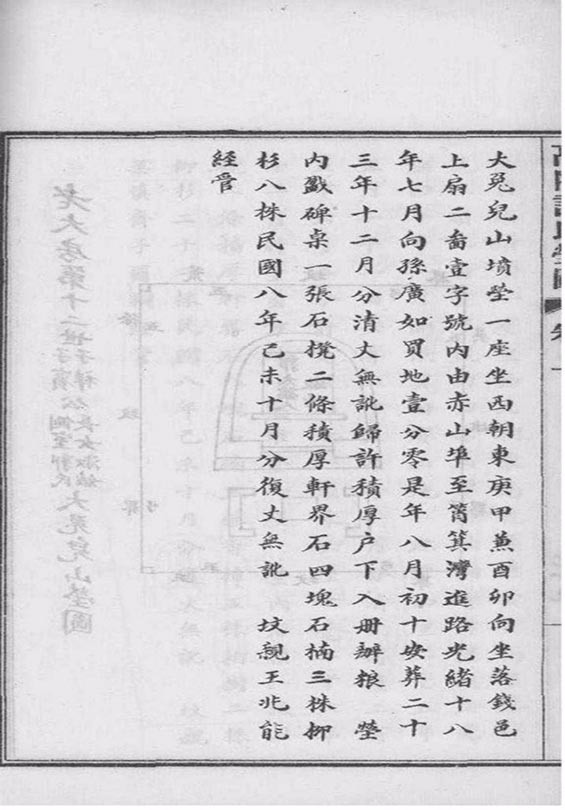 大兎兒山墳塋一座坐西朝東庚甲蒹酉卯向坐落錢邑
上扇二畨壹字號內由赤山埠至筲箕灣進路光緒十八
年七月向孫廣如買地壹分零是年八月初十安葬二十
三年十二月分清丈無訛歸許積厚户下入册辦粮 塋
內戤碑桌一張石櫈二條積厚軒界石四塊石楠三株柳
杉八株民國八年己未十月分復丈無訛 坟親王兆能
經管